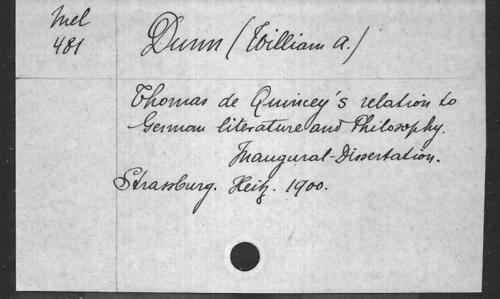 Mel
481
Dunn (William A.)
Thomas de Quincey's relation to
German literature and Philosophy.
Inaugural-Dissertation.
Strassburg. Heitz. 1900.